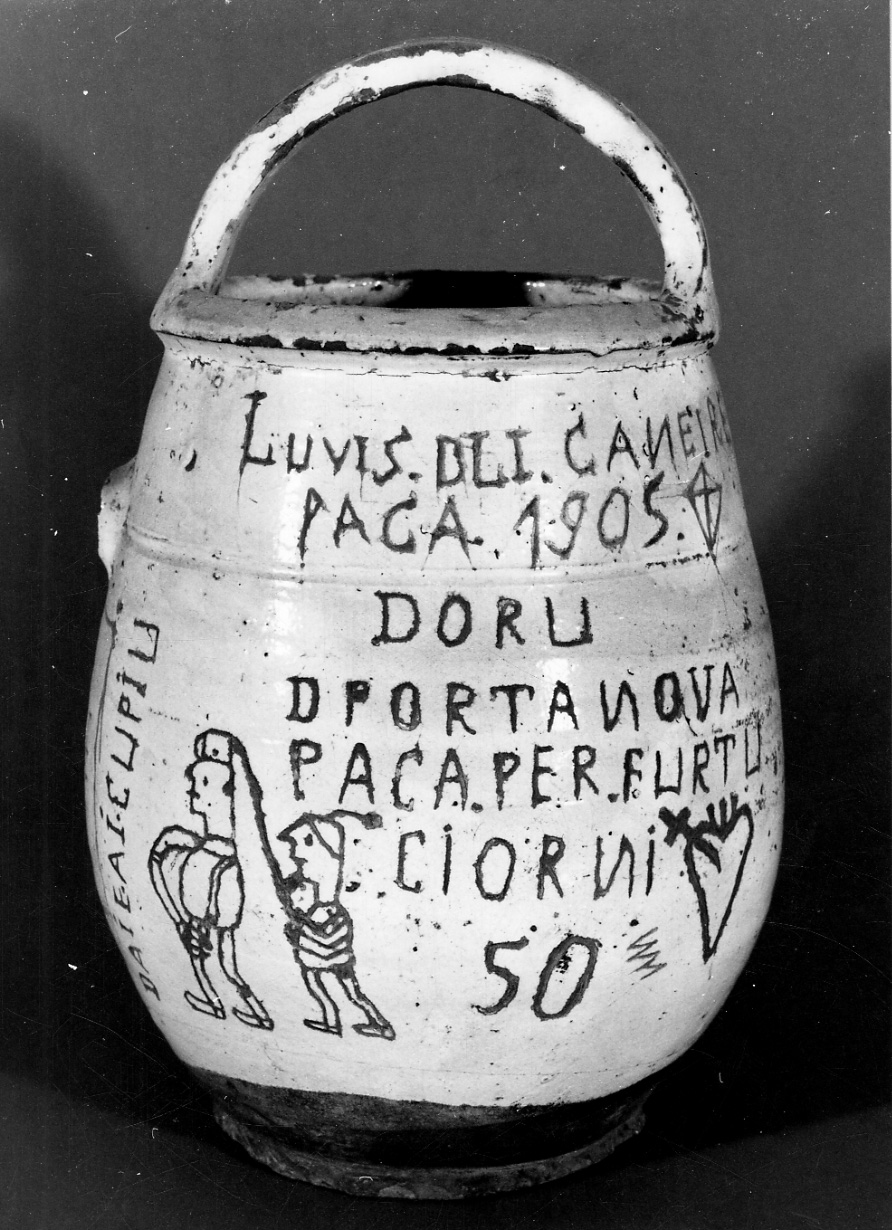 LUVIS.DLI.CANEIRE
PACA.1905.
DORU
DPORTANOVA
PACA.PER.FURTU
CiORNi
50